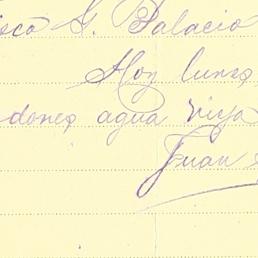 isco G. Palacio
Hoy lunes
dones agua vieja
Juan